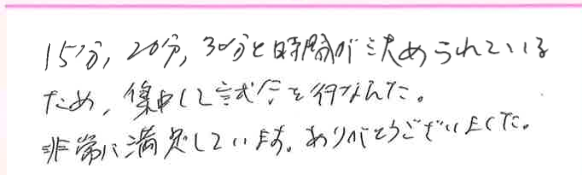 15分, 20分, 30分と時間が決められている
ため、集中して試合を行なえた。
非常に満足しています。ありがとうございました。